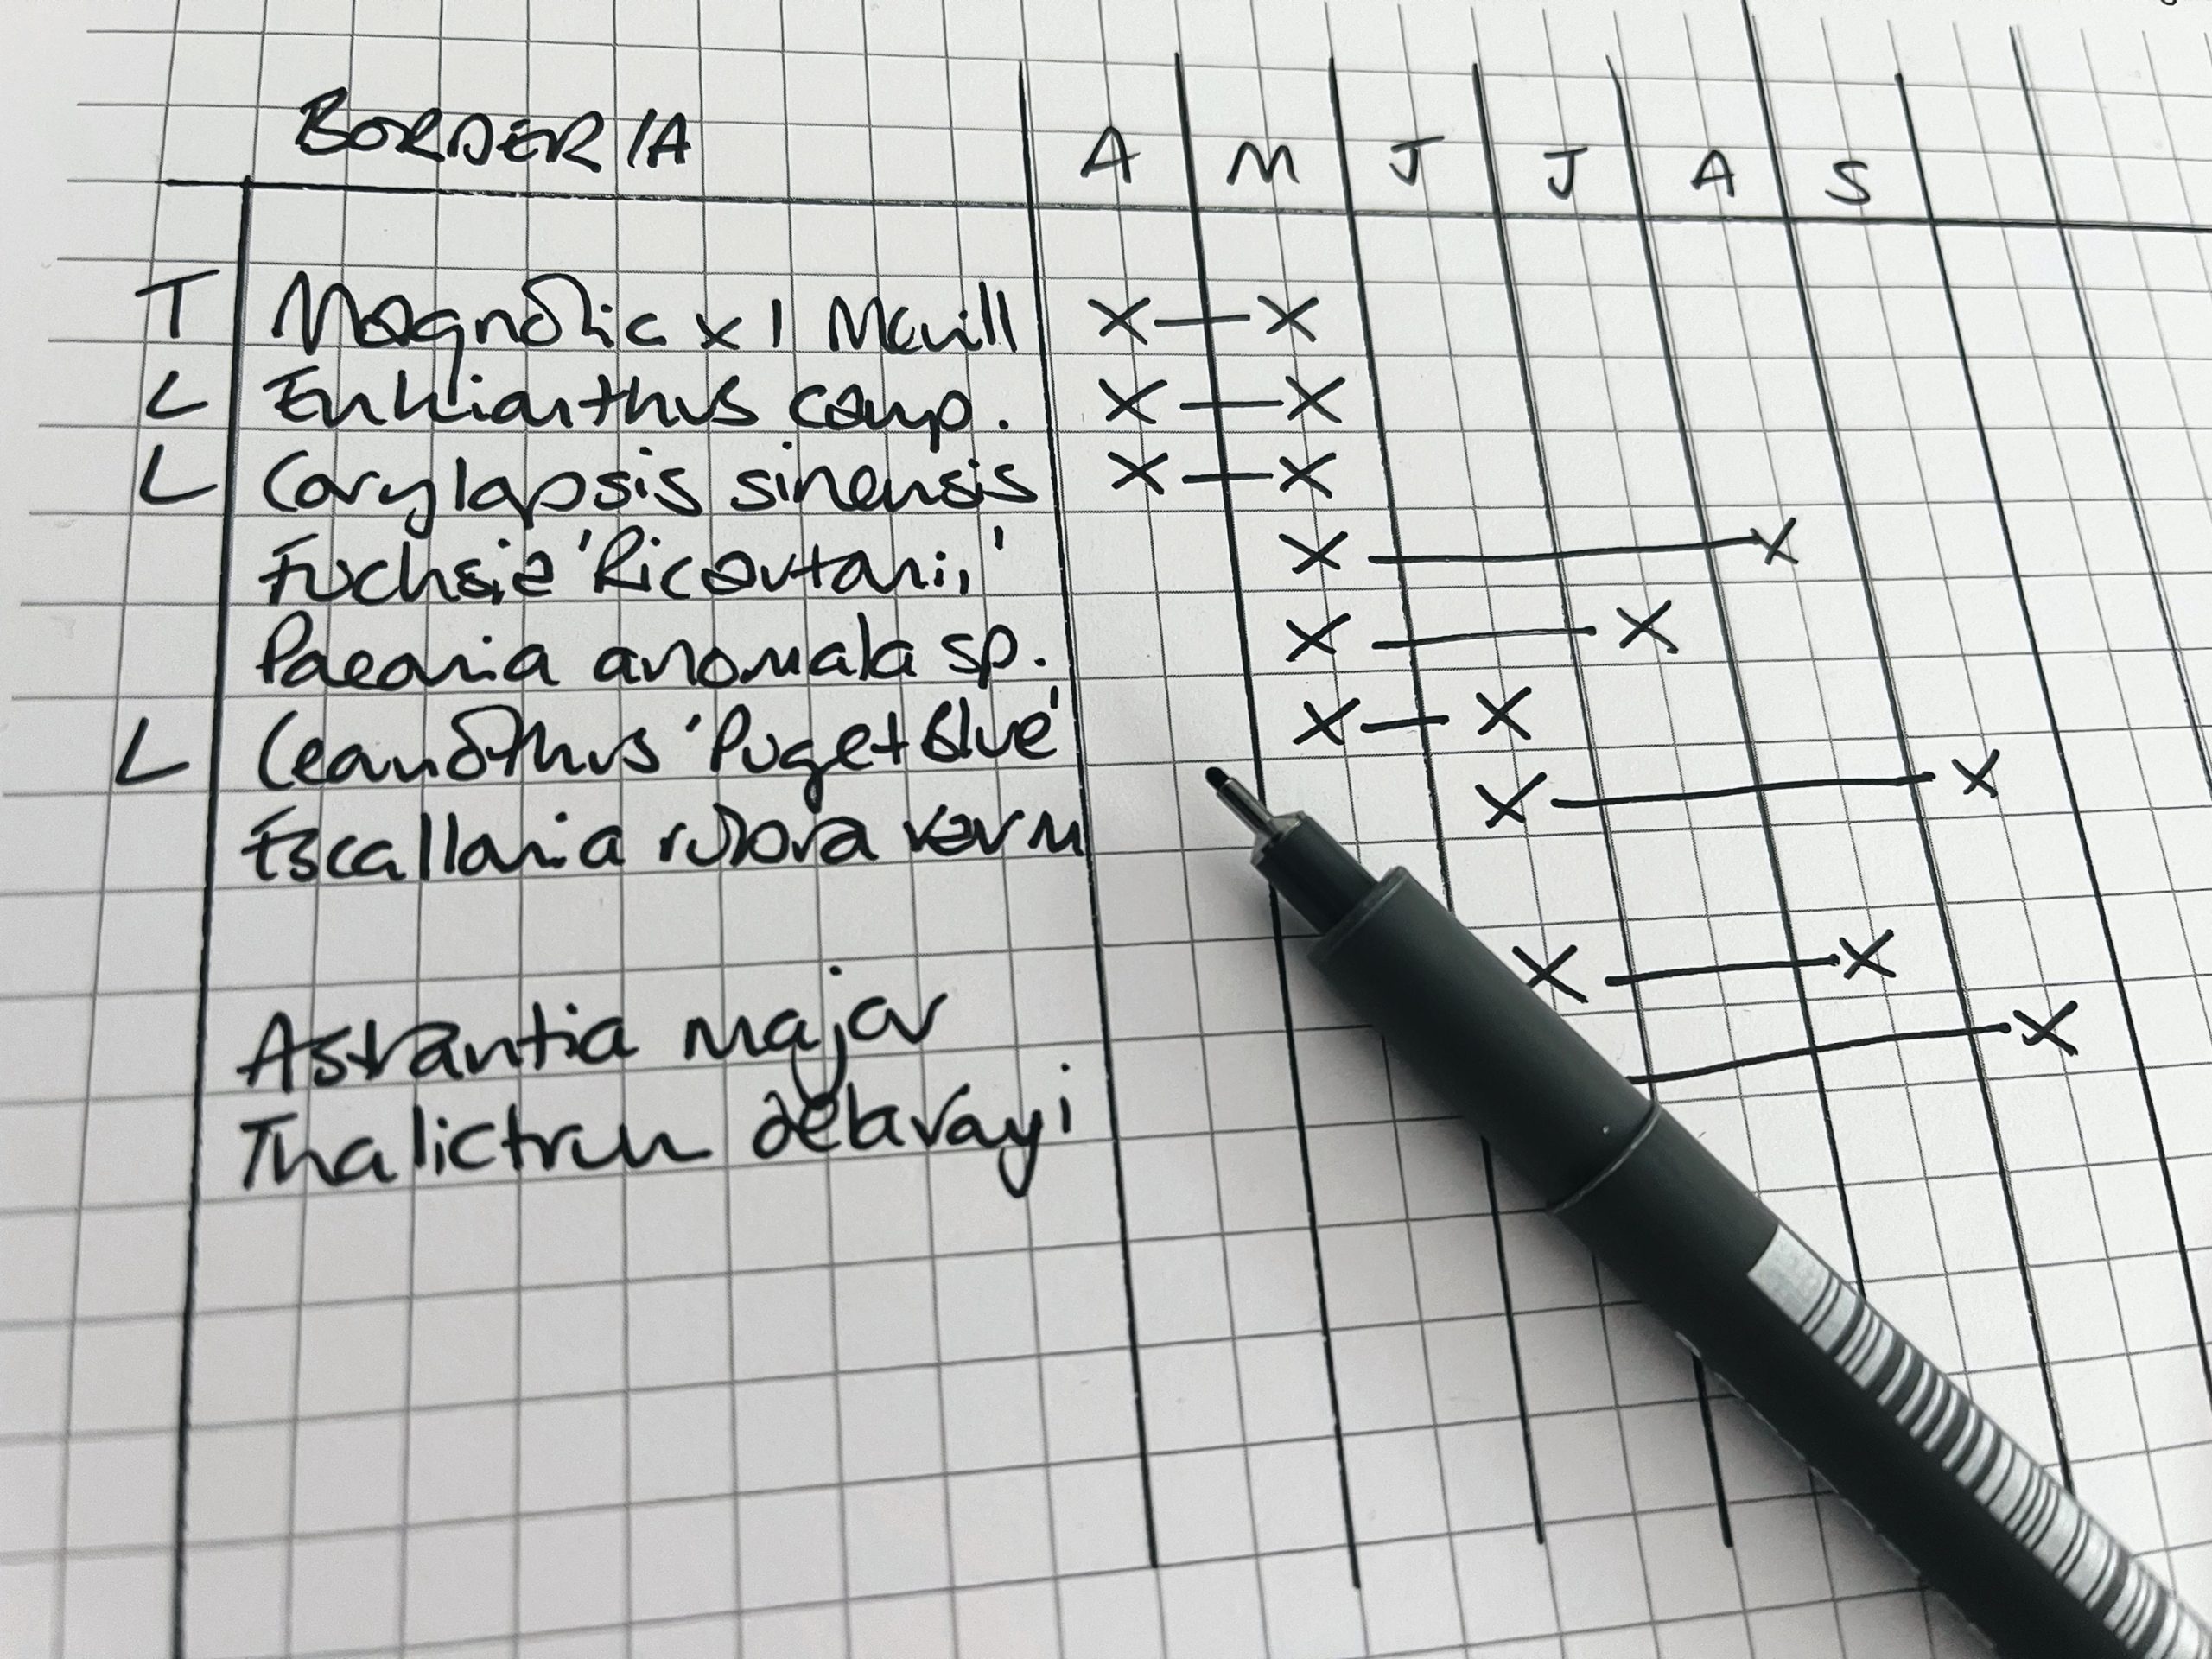 BORDER 1A A M J J A S
T Magnolia x 1 Merrill X — X
L Enkianthus camp. X — X
L Corylopsis sinensis X — X
Fuchsia 'Riccartonii' X — X
Paeonia anomala sp. X — X
L Ceanothus 'Puget Blue' X — X
Escallonia rubra X — X
Astrantia major X — X
Thalictrum delavayi — X